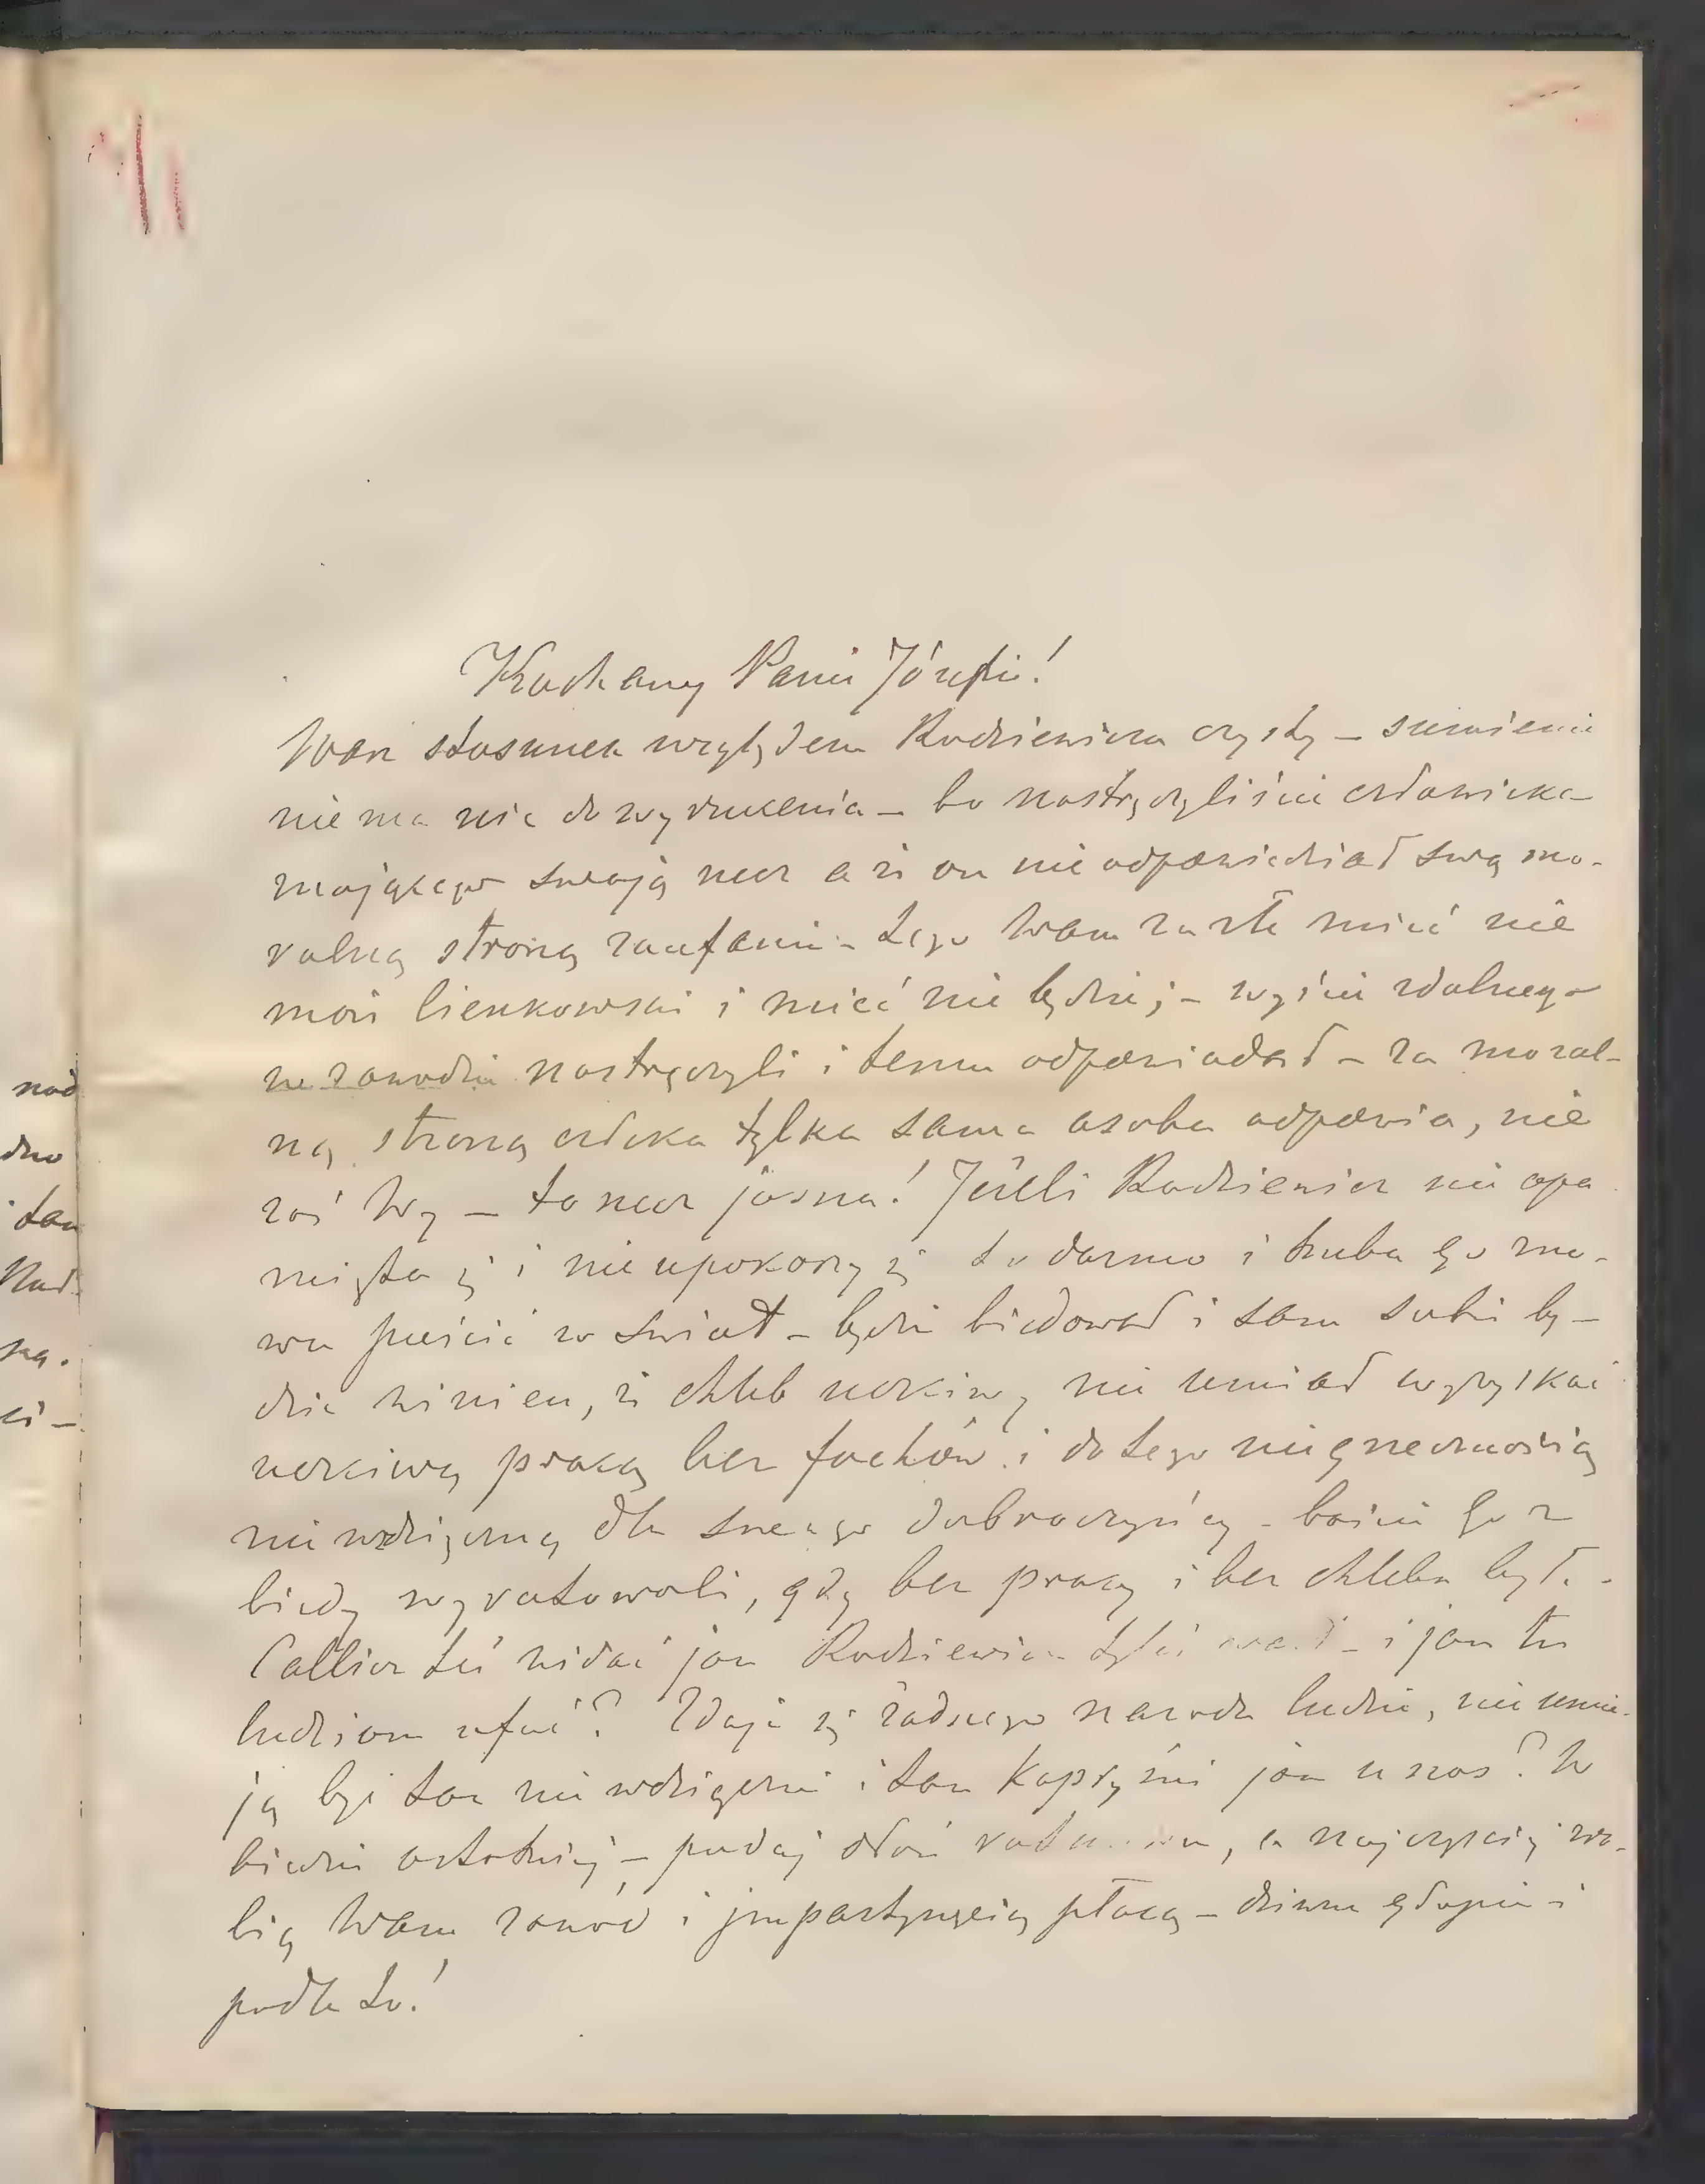 Kochany Panie Józefie!
Wasz stosunek względem Rodziewicza czysty – sumienie
nie ma nic do wyrzucenia – bo nastręczyliście człowieka
znającego swoją rzecz a że on nie odpowiedział swą mo-
ralną stroną zaufaniu – tego Wam za złe mieć nie
może Cienkowski i mieć nie będzie; – wyście zdolnego
w zawodzie nastręczyli i temu odpowiadał – za moral-
ną stroną człeka tylko sama osoba odpowia, nie
zaś Wy – to rzecz jasna! Jeżeli Rodziewicz nie opa
mięta się i nie upokorzy się to darmo i trzeba go zno-
wu puścić w świat – będzie biedował i sam sobie bę-
dzie winien, że chleb uczciwy nie umiał wyzyskać
uczciwą pracą bez fochów i do tego niegrzecznością
niewdzięczną dla swego dobroczyńcy – boście go z
biedy wyratowali, gdy bez pracy i bez chleba był. –
Callier też widać jak Rodziewicz tyleż – i jak tu
ludziom ufać? Zdaje się żadnego narodu ludzie, nie umie-
ją być tak niewdzięczni i tak kapryśni jak u nas? W
biedzie ostatniej – podaj dłoń, a najczęściej zro-
bią Wam zawód i impertynęcią płacą – dziwne głupie i
podłe to!
nad
dno
tak
Nad
ną.
ci –